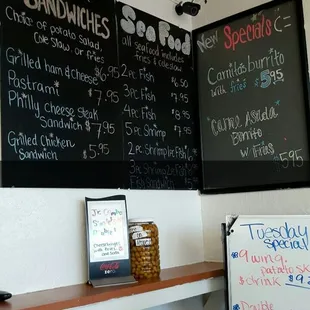 SANDWICHES
Choice of potato salad,
cole slaw or fries
Grilled ham & cheese $6.95
Pastrami $7.95
Philly cheese steak
Sandwich $7.95
Grilled Chicken
Sandwich $5.95
Sea Food
all seafood includes
fries & coleslaw
2pc Fish
3pc Fish
4pc Fish
5pc Shrimp
2pc Shrimp 1pc Fish
New Specials
Carnitas burrito
with fries 5.95
Carne Asada
Burrito
w/ Fries 5.95
Tuesday
Special
9 wing
potato
drink $9.
Double